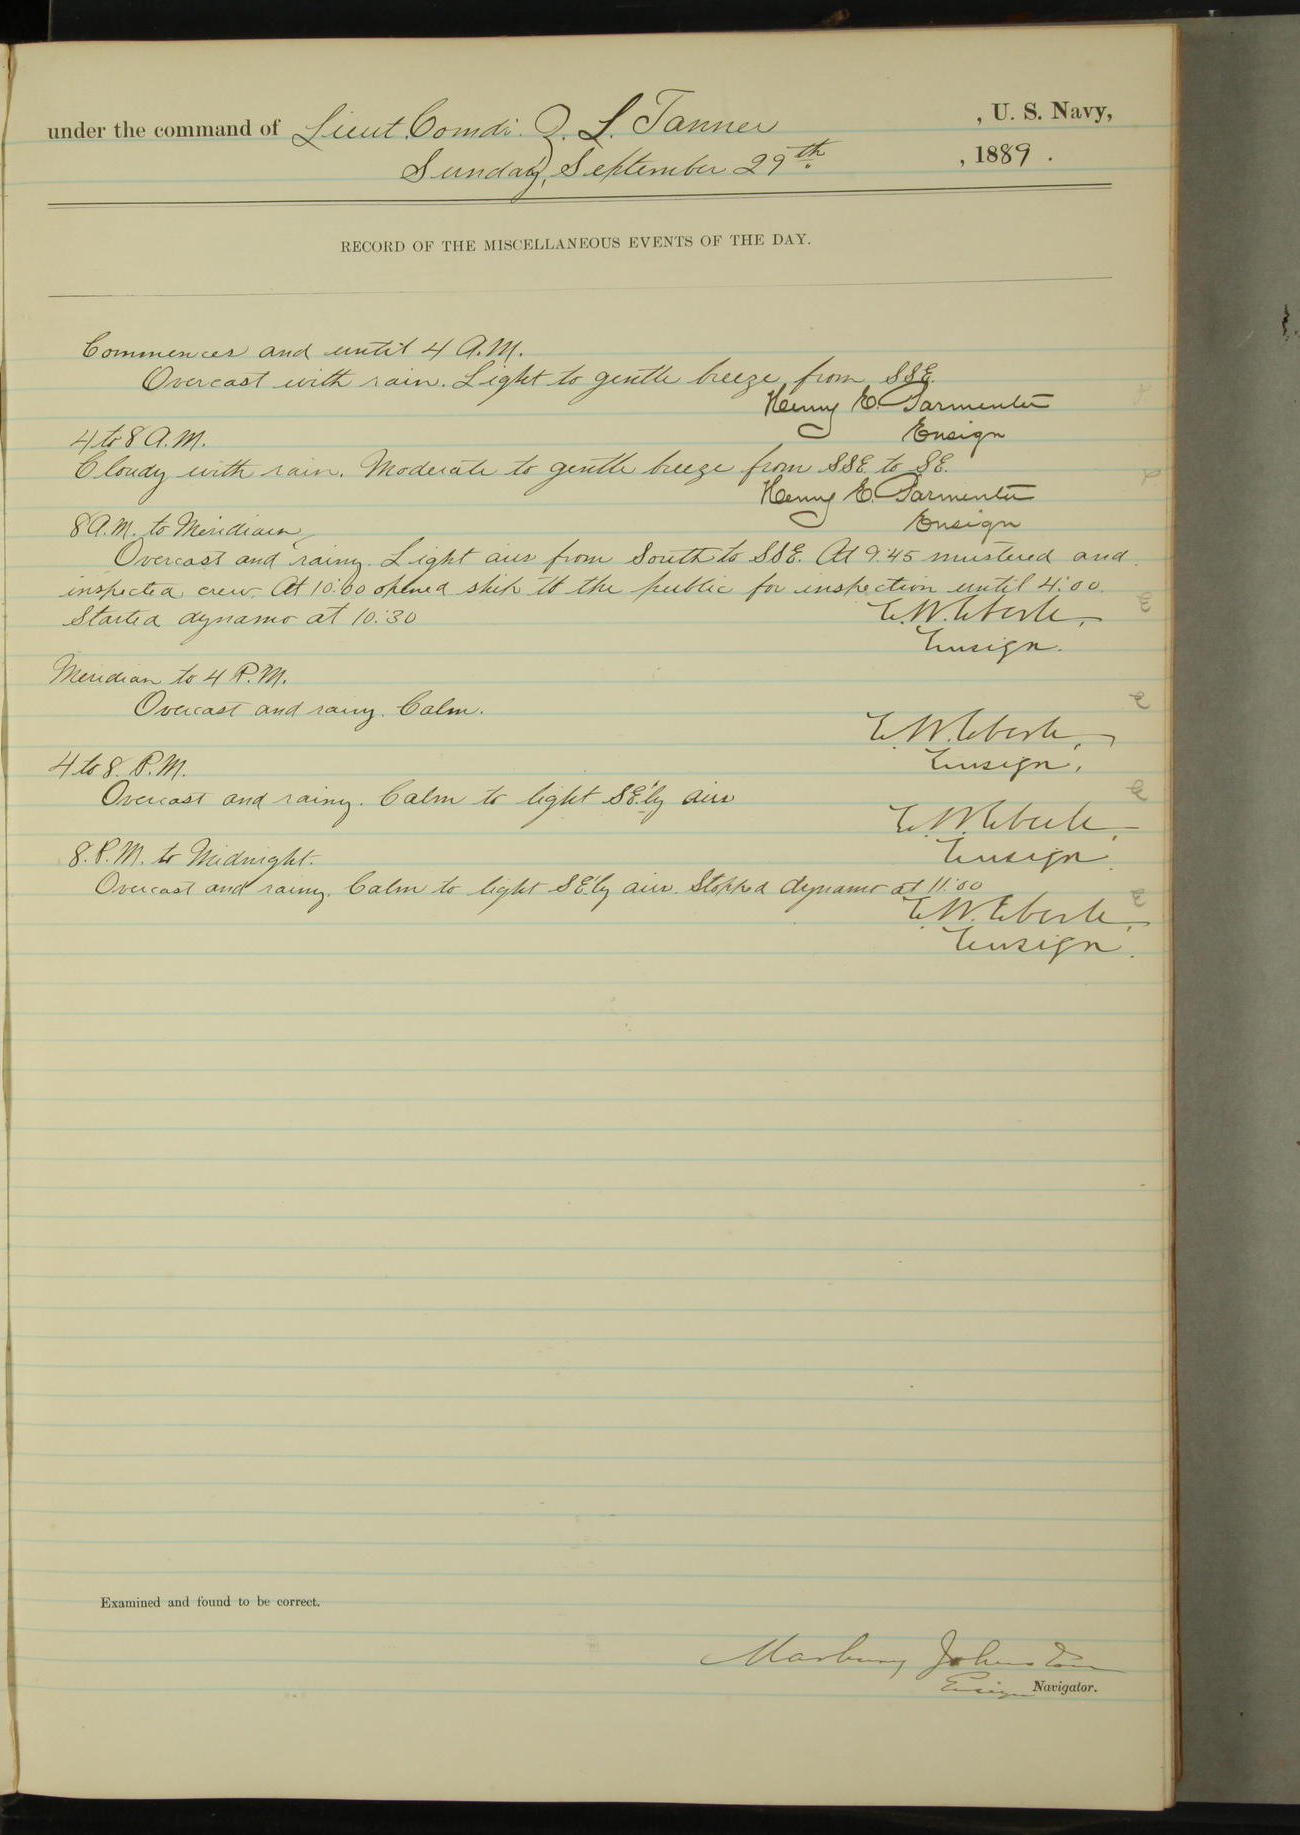 under the command of Lieut. Comdr. Z. L. Tanner, U. S. Navy,
Sunday, September 29th, 1889.
RECORD OF THE MISCELLANEOUS EVENTS OF THE DAY.
Commences and until 4 A.M.
Overcast with rain. Light to gentle breeze from SSE.
Henry E. Parmenter
Ensign
4 to 8 A.M.
Cloudy with rain. Moderate to gentle breeze from SSE to SE.
Henry E. Parmenter
Ensign
8 A.M. to Meridian
Overcast and rainy. Light airs from South to SSE. At 9.45 mustered and
inspected crew. At 10:00 opened ship to the public for inspection until 4:00.
Started dynamo at 10:30
E. W. Eberle,
Ensign.
Meridian to 4 P.M.
Overcast and rainy. Calm.
E. W. Eberle,
Ensign.
4 to 8. P.M.
Overcast and rainy. Calm to light SE'ly airs
E. W. Eberle,
Ensign.
8. P.M. to Midnight.
Overcast and rainy. Calm to light SE'ly airs. Stopped dynamo at 11:00
E. W. Eberle,
Ensign.
Examined and found to be correct.
Marbury Johnston
Ensign Navigator.